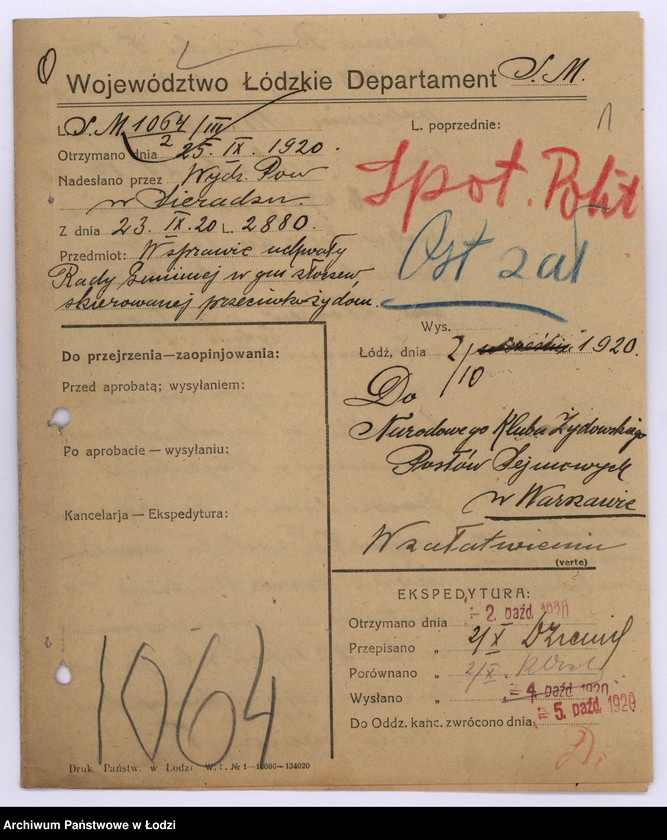 Województwo Łódzkie Departament S. M.
L. S. M. 1064/III
2
Otrzymano dnia 25. IX. 1920.
Nadesłano przez Wydz. Pow
w Sieradzu.
Z dnia 23. IX. 20 L. 2880.
Przedmiot: W sprawie uchwały
Rady Gminnej w gm
skierowanej przeciwko żydom.
L. poprzednie:
Społ. Polit
Ost zał
Do przejrzenia—zaopinjowania:
Przed aprobatą; wysyłaniem:
Po aprobacie — wysyłaniu:
Kancelarja — Ekspedytura:
1064
Wys.
Łódź, dnia 2/10 1920.
Do
Narodowego Klubu Żydowskiego
Posłów Sejmowych
w Warszawie
W załatwieniu
(verte)
EKSPEDYTURA:
Otrzymano dnia 2. paźd. 1920
Przepisano „ 2/X
Porównano „ 2/X.
Wysłano „ 4. paźd. 1920
Do Oddz. kanc. zwrócono dnia 5. paźd. 1920
Druk. Państw. w Łodzi W. Ł. № 1—10000—134020
Archiwum Państwowe w Łodzi